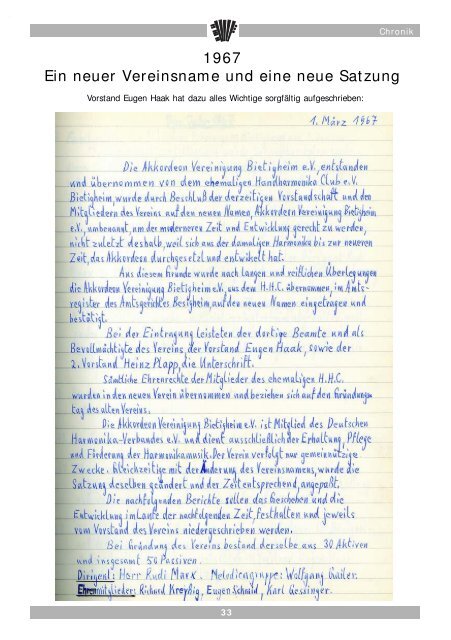 Chronik
1967
Ein neuer Vereinsname und eine neue Satzung
Vorstand Eugen Haak hat dazu alles Wichtige sorgfältig aufgeschrieben:
1. März 1967
Die Akkordeon Vereinigung Bietigheim e.V., entstanden
und übernommen von dem ehemaligen Handharmonika Club e.V.
Bietigheim, wurde durch Beschluß der derzeitigen Vorstandschaft und den
Mitgliedern des Vereins auf den neuen Namen, Akkordeon Vereinigung Bietigheim
e.V., umbenannt, um der moderneren Zeit und Entwicklung gerecht zu werden,
nicht zuletzt deshalb, weil sich aus der damaligen Harmonika bis zur neueren
Zeit, das Akkordeon durchgesetzt und entwikelt hat.
Aus diesem Grunde wurde nach langen und reiflichen Überlegungen
die Akkordeon Vereinigung Bietigheim e.V., aus dem H.H.C. übernommen, im Amts-
register des Amtsgerichtes Besigheim, auf den neuen Namen eingetragen und
bestätigt.
Bei der Eintragung leisteten der dortige Beamte und als
Bevollmächtigte des Vereins, der Vorstand Eugen Haak, sowie der
2. Vorstand Heinz Plapp, die Unterschrift.
Sämtliche Ehrenrechte der Mitglieder des ehemaligen H.H.C.
wurden in den neuen Verein übernommen und beziehen sich auf den Gründungs
tag des alten Vereins.
Die Akkordeon Vereinigung Bietigheim e.V. ist Mitglied des Deutschen
Harmonika-Verbandes e.V. und dient ausschließlich der Erhaltung, Pflege
und Förderung der Harmonikamusik. Der Verein verfolgt nur gemeinnützige
Zwecke. Gleichzeitig mit der Änderung des Vereinsnamens, wurde die
Satzung desselben geändert und der Zeit entsprechend, angepaßt.
Die nachfolgenden Berichte sollen das Geschehen und die
Entwicklung im Laufe der nachfolgenden Zeit, festhalten und jeweils
vom Vorstand des Vereins niedergeschrieben werden.
Bei Gründung des Vereins bestand derselbe aus 30 Aktiven
und insgesamt 50 Passiven.
Dirigent: Herr Rudi Marx. Melodicagruppe: Wolfgang Gailer.
Ehrenmitglieder: Richard Kreyßig, Eugen Schmid, Karl Gessinger.
33